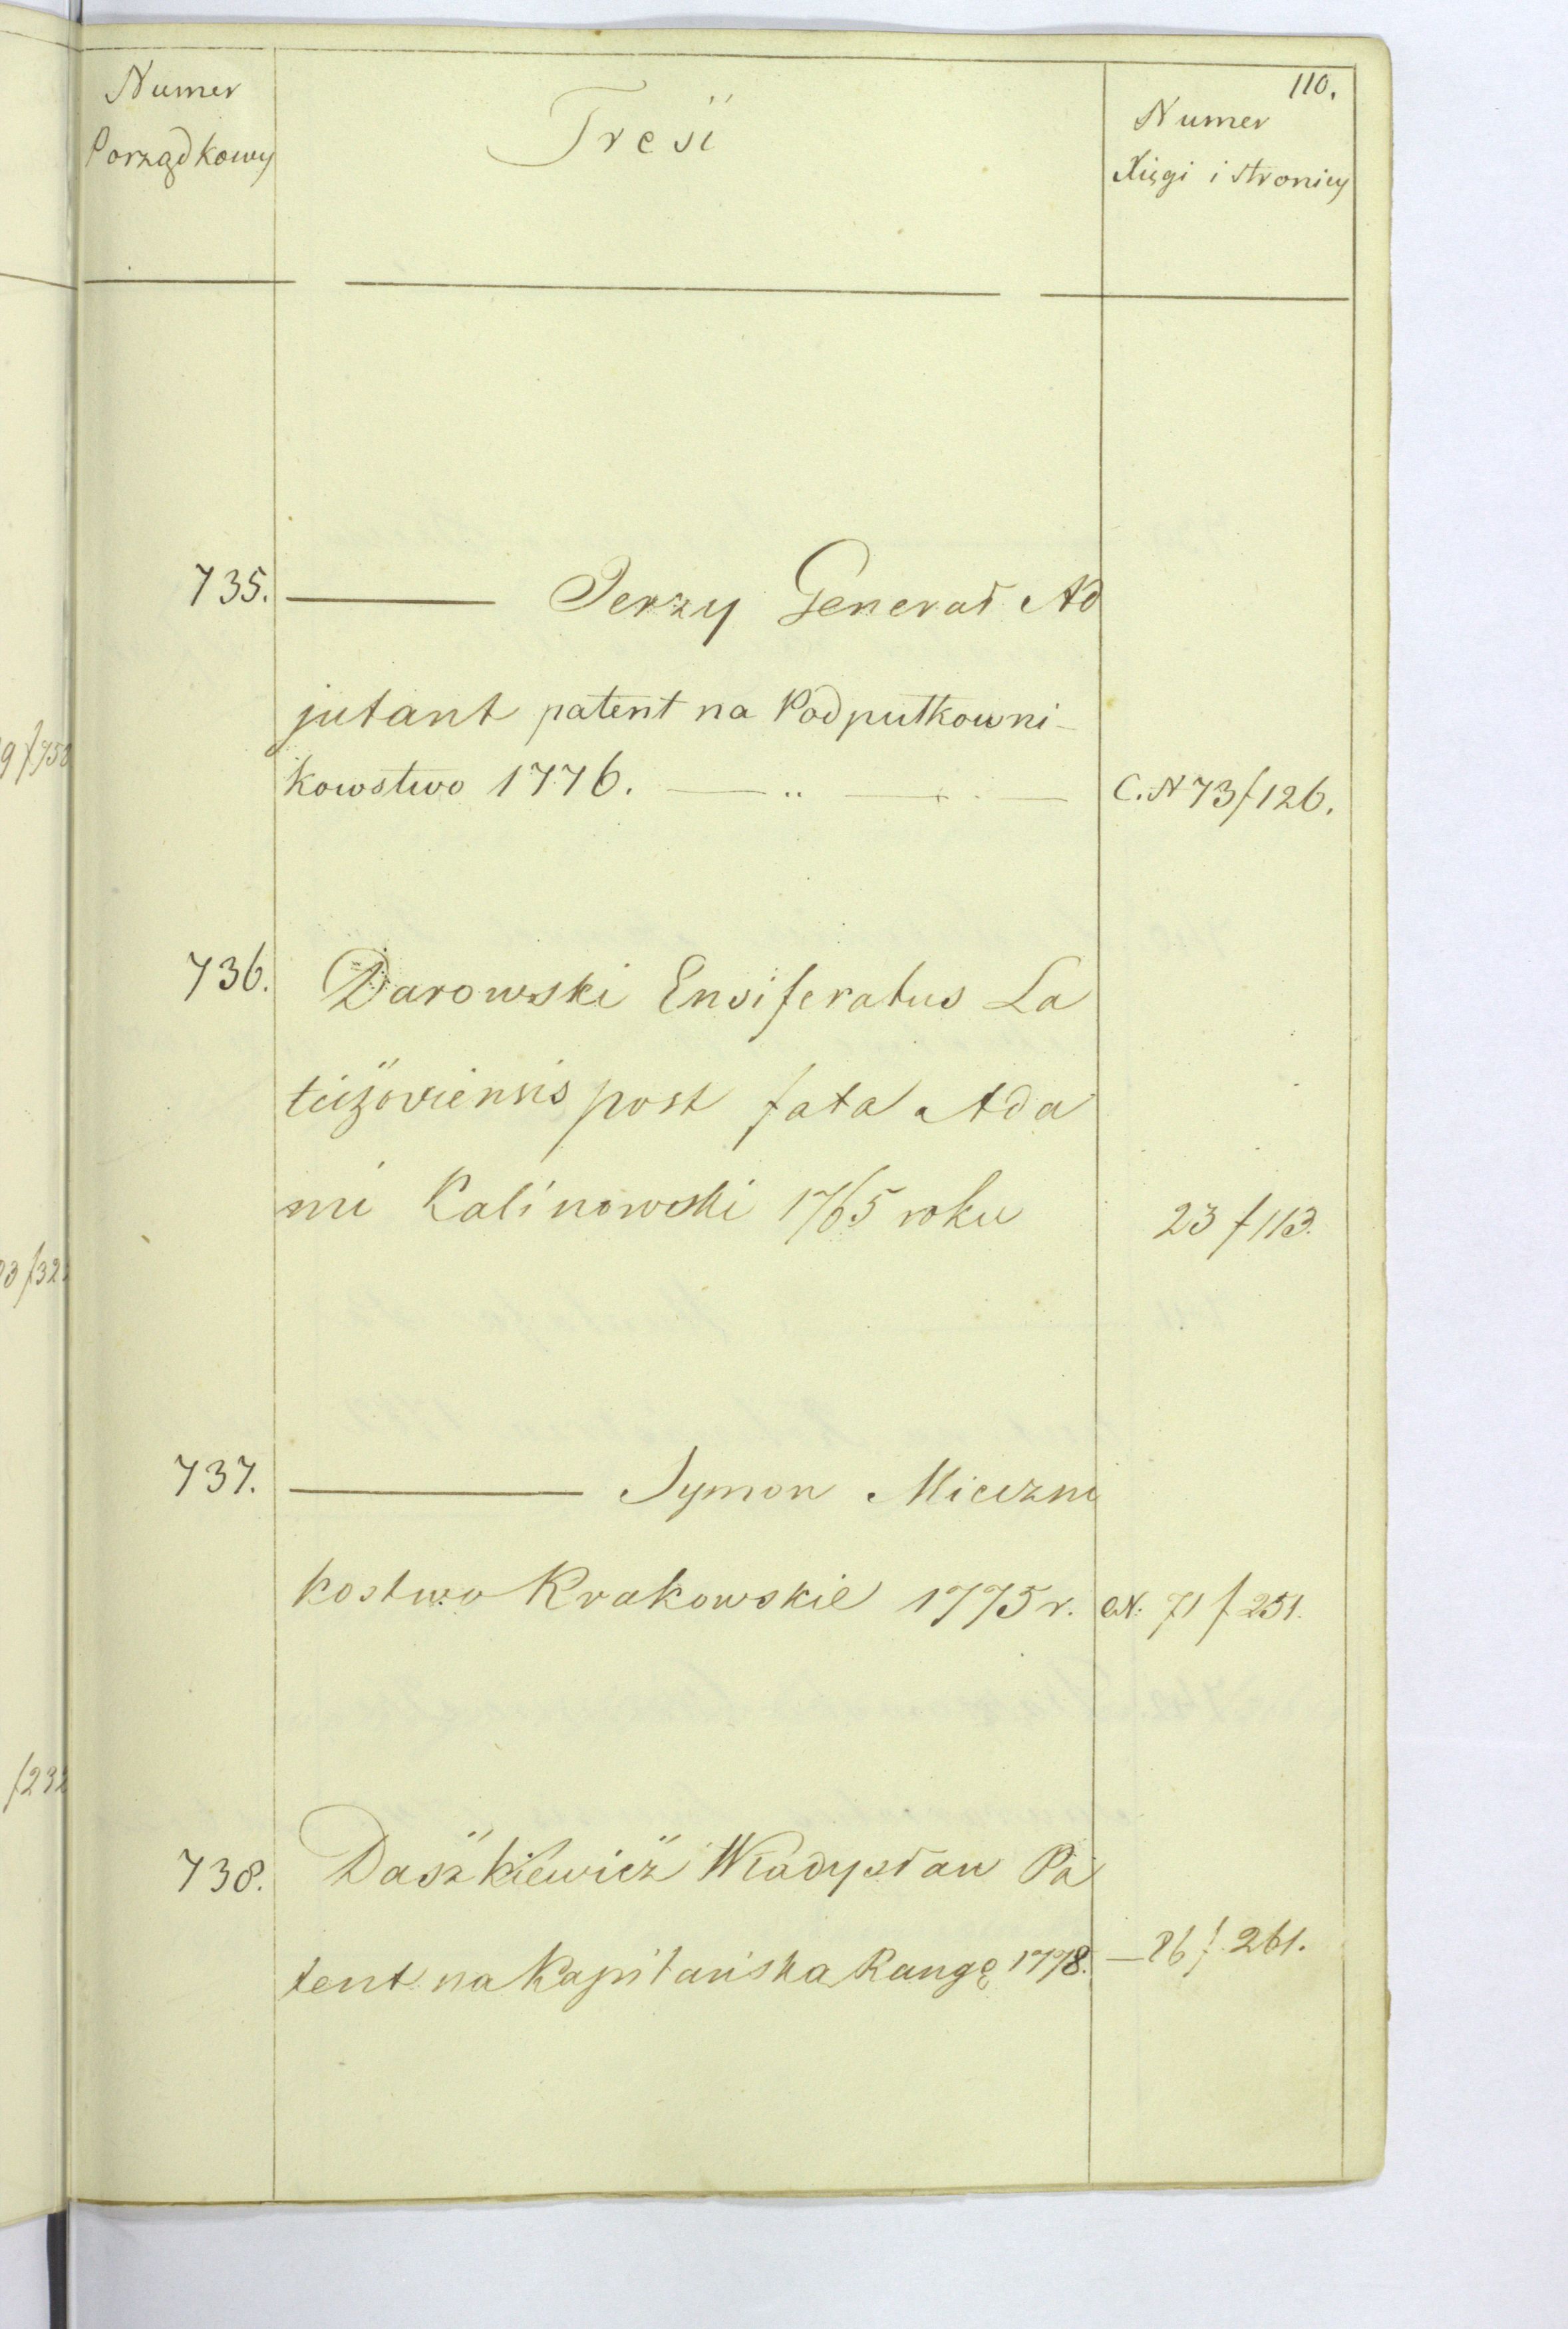 110.
Numer
Porządkowy
Treść
Numer
Xięgi i stronicy
735. ——— Jerzy Generał Ad
jutant patent na Podpułkowni-
kowstwo 1776. — .. — . — C. N 73 f 126.
736. Darowski Ensiferatus La
ticzoviensis post fata Ada
mi Kalinowski 1765 roku 23 f 113.
737. ——— Symon Mieczni
kostwo Krakowskie 1775 r. CN. 71 f 251.
738. Daszkiewicz Władysław Pa
tent na Kapitańską Rangę 1778. — 86 f. 261.